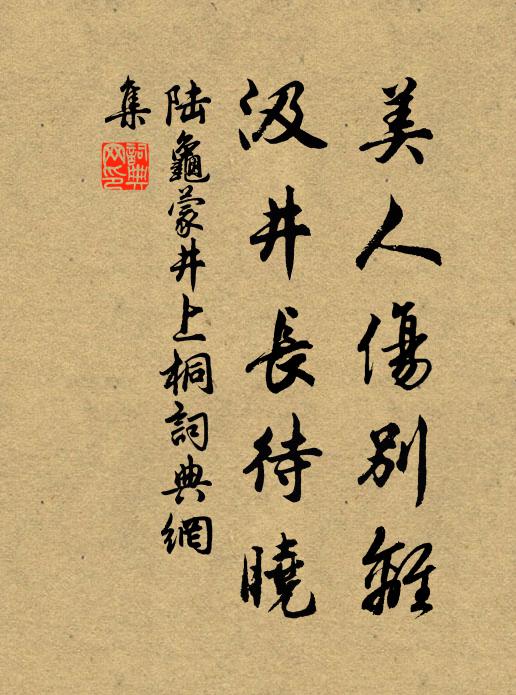 美人傷別離
汲井長待曉
陆龜蒙井上桐詞典網
集
詞典网印